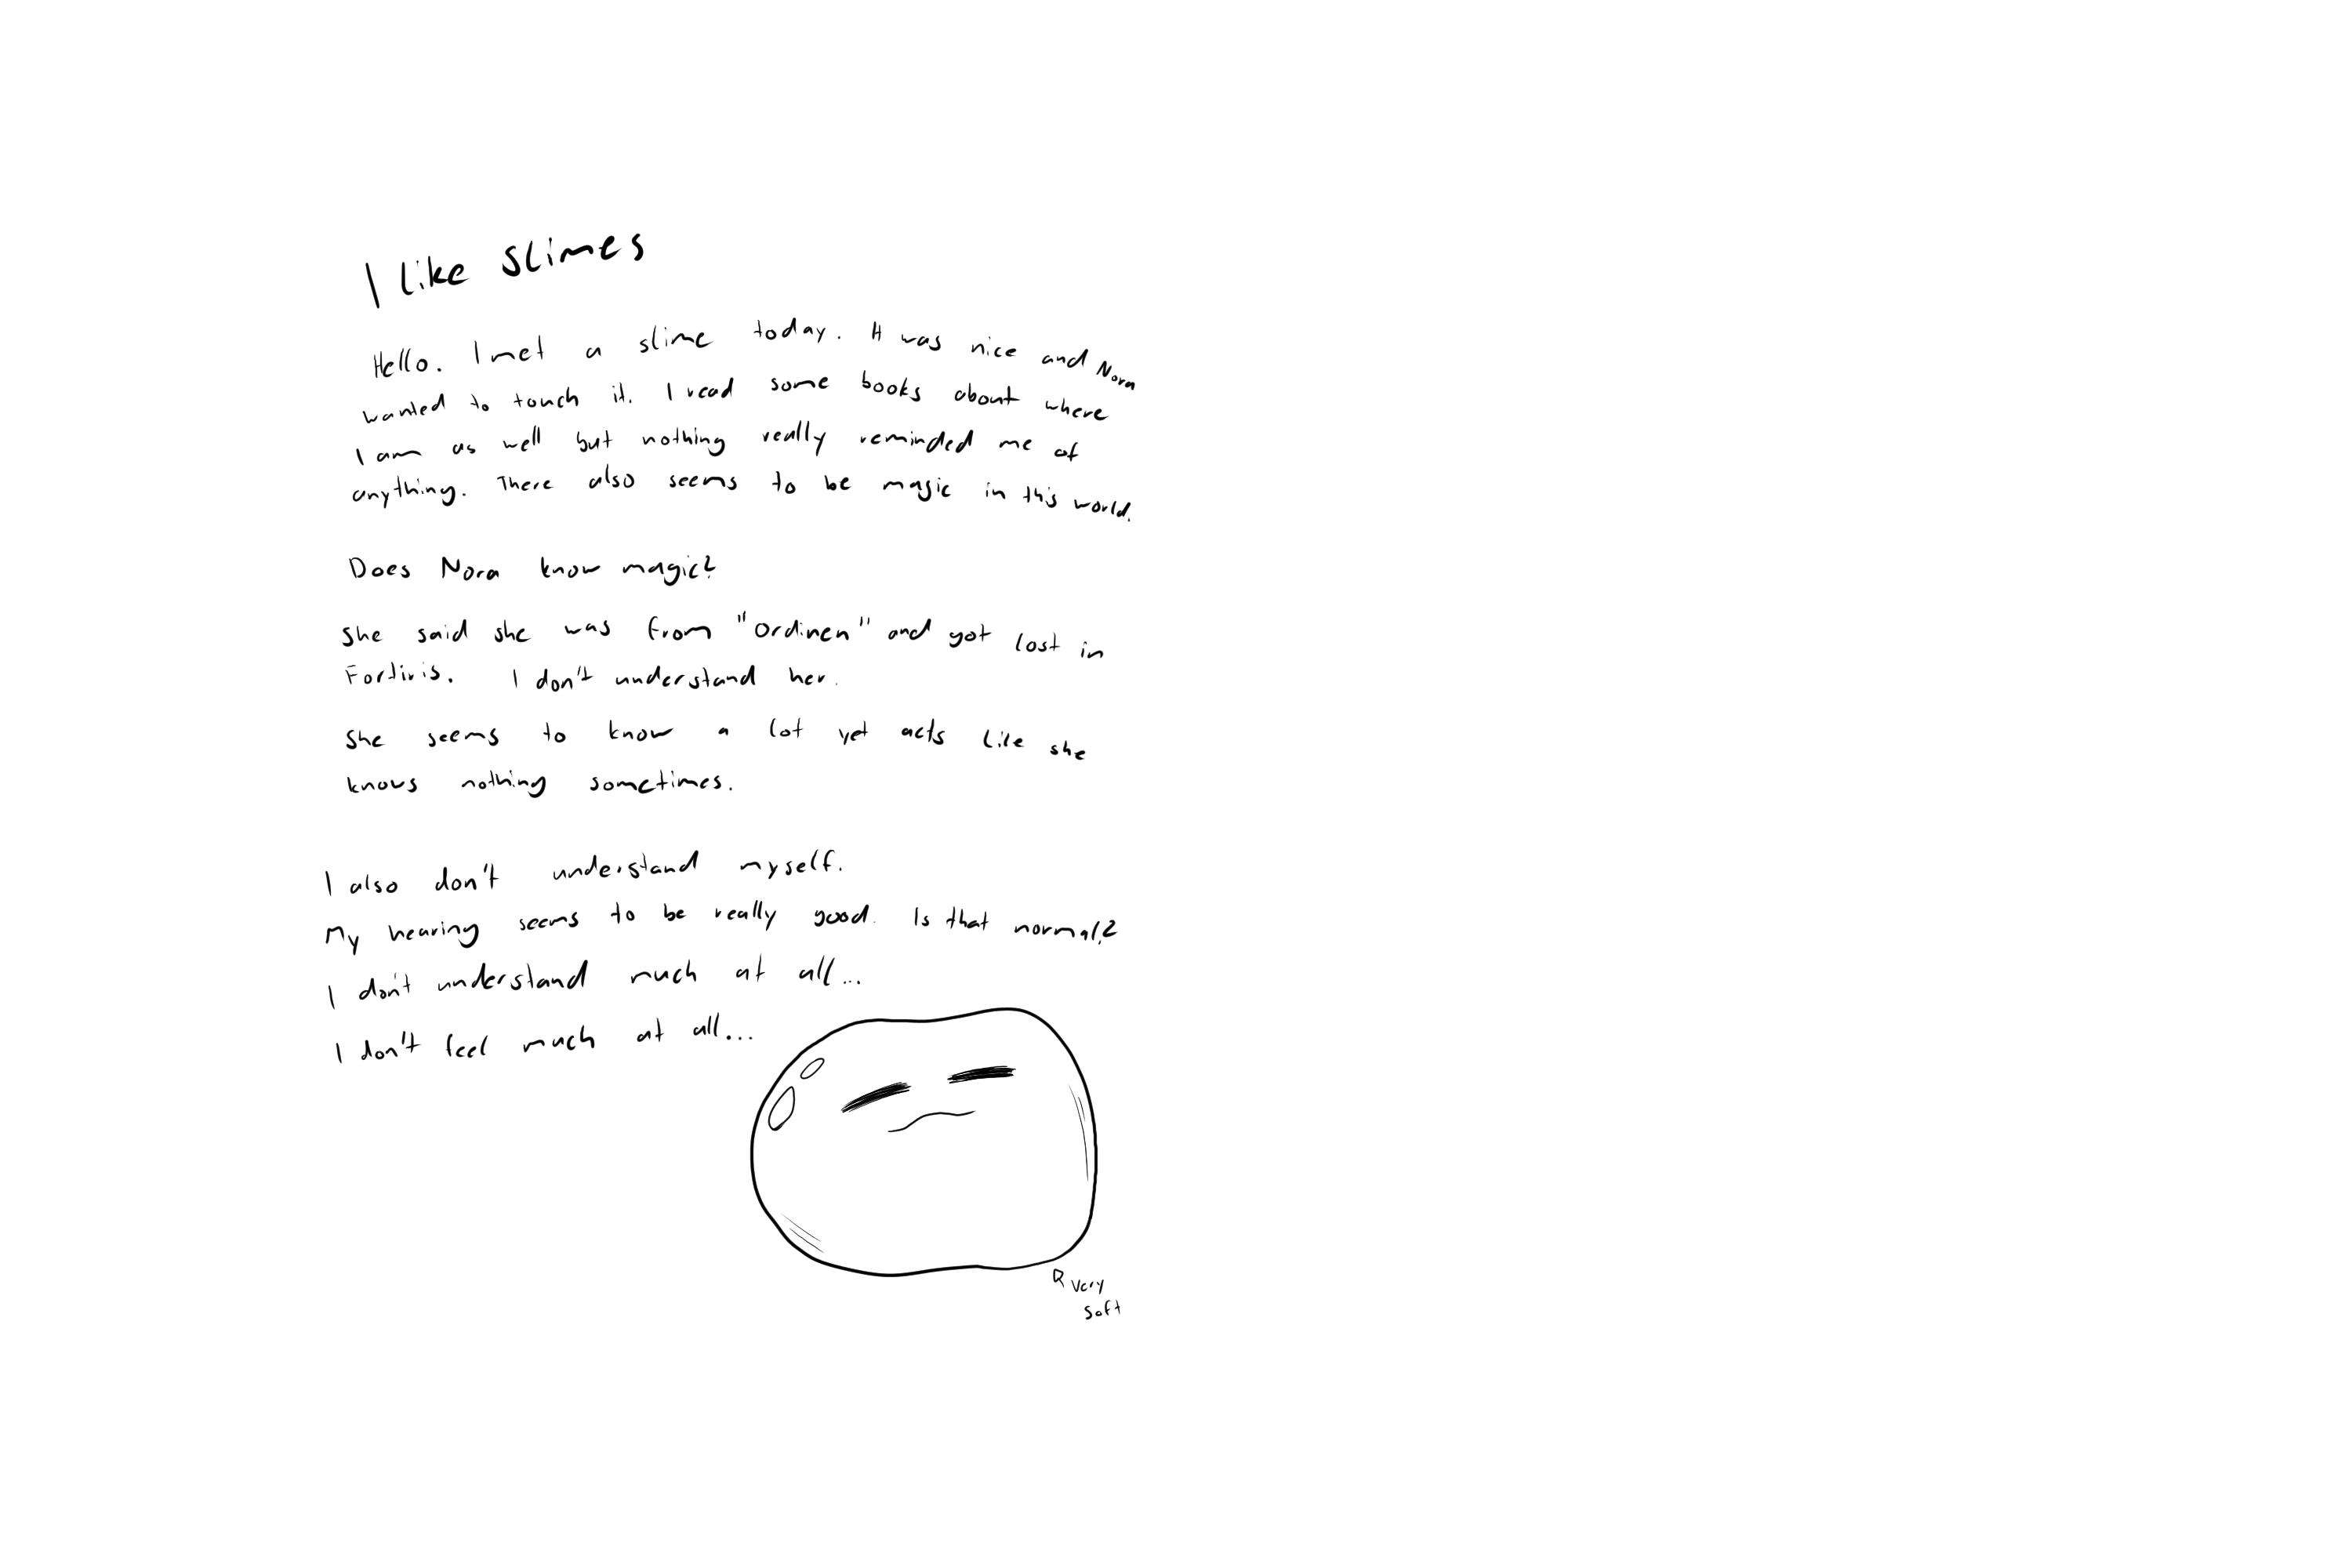 I like slimes
Hello. I met a slime today. It was nice and Nora
wanted to touch it. I read some books about where
I am as well but nothing really reminded me of
anything. There also seems to be magic in this world.
Does Nora know magic?
She said she was from "Ordinen" and got lost in
Fortiris. I don't understand her.
She seems to know a lot yet acts like she
knows nothing sometimes.
I also don't understand myself.
My hearing seems to be really good. Is that normal?
I don't understand much at all...
I don't feel much at all...
very
soft